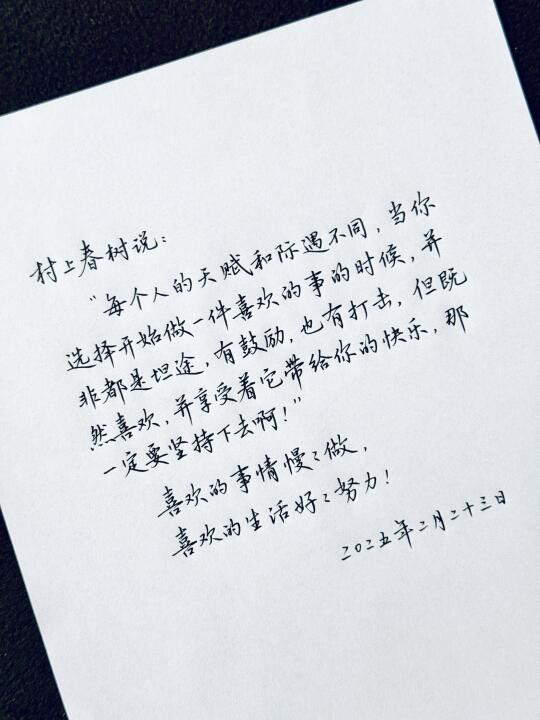 村上春树说：
“每个人的天赋和际遇不同，当你
选择开始做一件喜欢的事的时候，并
非都是坦途，有鼓励，也有打击，但既
然喜欢，并享受着它带给你的快乐，那
一定要坚持下去啊！”
喜欢的事情慢々做，
喜欢的生活好々努力！
二〇二五年二月二十三日